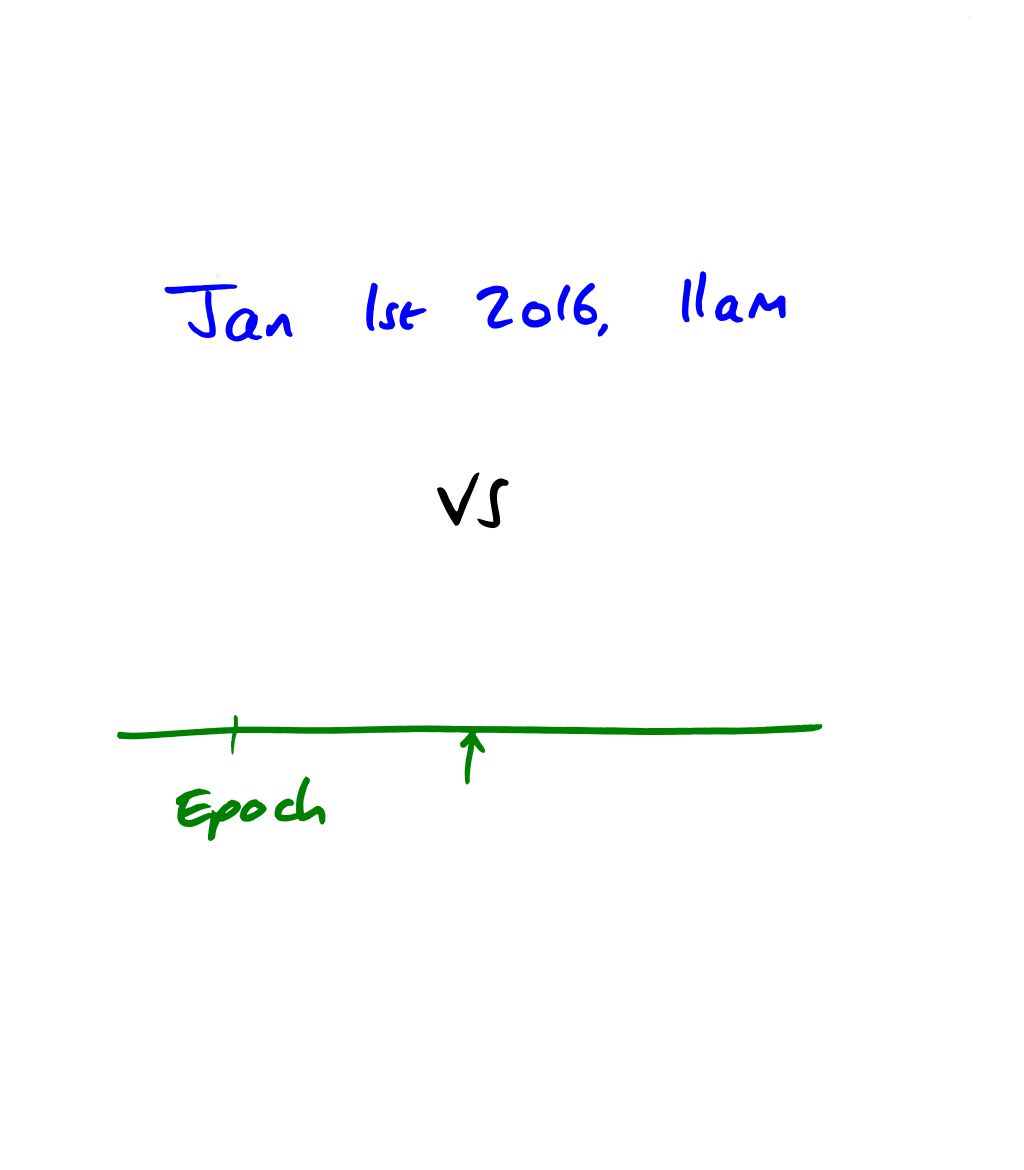 Jan 1st 2016, 11am
vs
Epoch